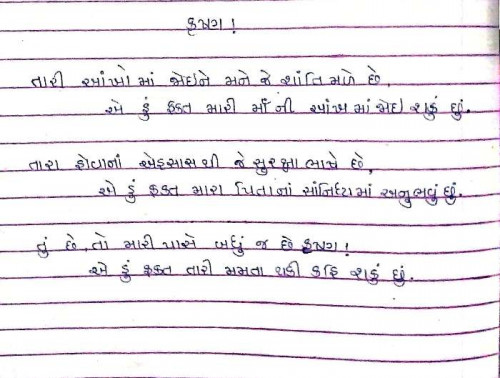 ક્રિષ્ણ !
તારી આંખો માં જોઇને મને જે શાંતિ મળે છે,
એ હું ફક્ત મારી માઁ ની આંખ માં જોઇ શકું છું.
તારા હોવાનાં એહસાસ થી જે સુરક્ષા ભાવે છે,
એ હું ફક્ત મારા પિતાનાં સાંનિધ્ય માં અનુભવું છું.
તું છે, તો મારી પાસે બધું જ છે ક્રિષ્ણ !
એ હું ફક્ત તારી મમતા થકી કહિ શકું છું.